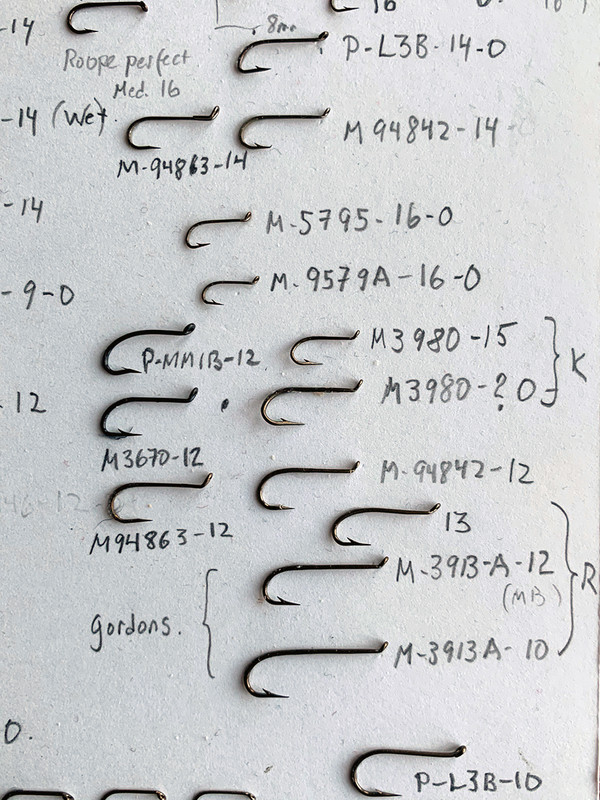 -14
16
8mm
P-L3B-14-0
Roope perfect
Med. 16
-14 (Wet.
M-94863-14
M 94842-14
-14
M-5795-16-0
-9-0
M-9579A-16-0
P-MM1B-12
M3980-15
K
M3980-? 0
12
M3670-12
M-94842-12
M94863-12
13
M-3913-A-12
(MB)
R
gordons.
M-3913A-10
0.
P-L3B-10